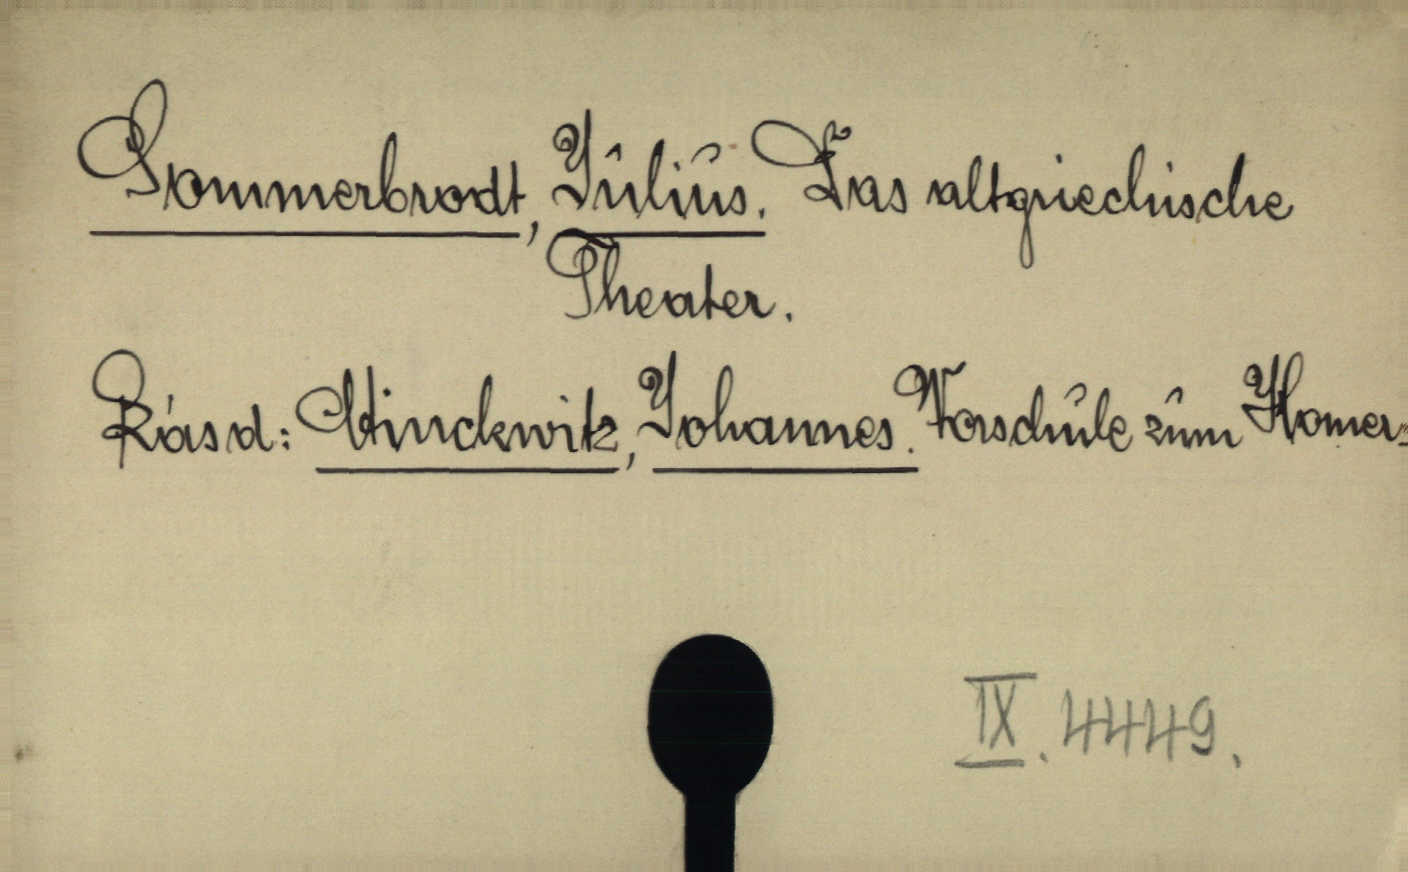 Sommerbrodt, Julius. Das altgriechische
Theater.
Lásd: Minckwitz, Johannes. Vorschule zum Homer.
IX. 4449.